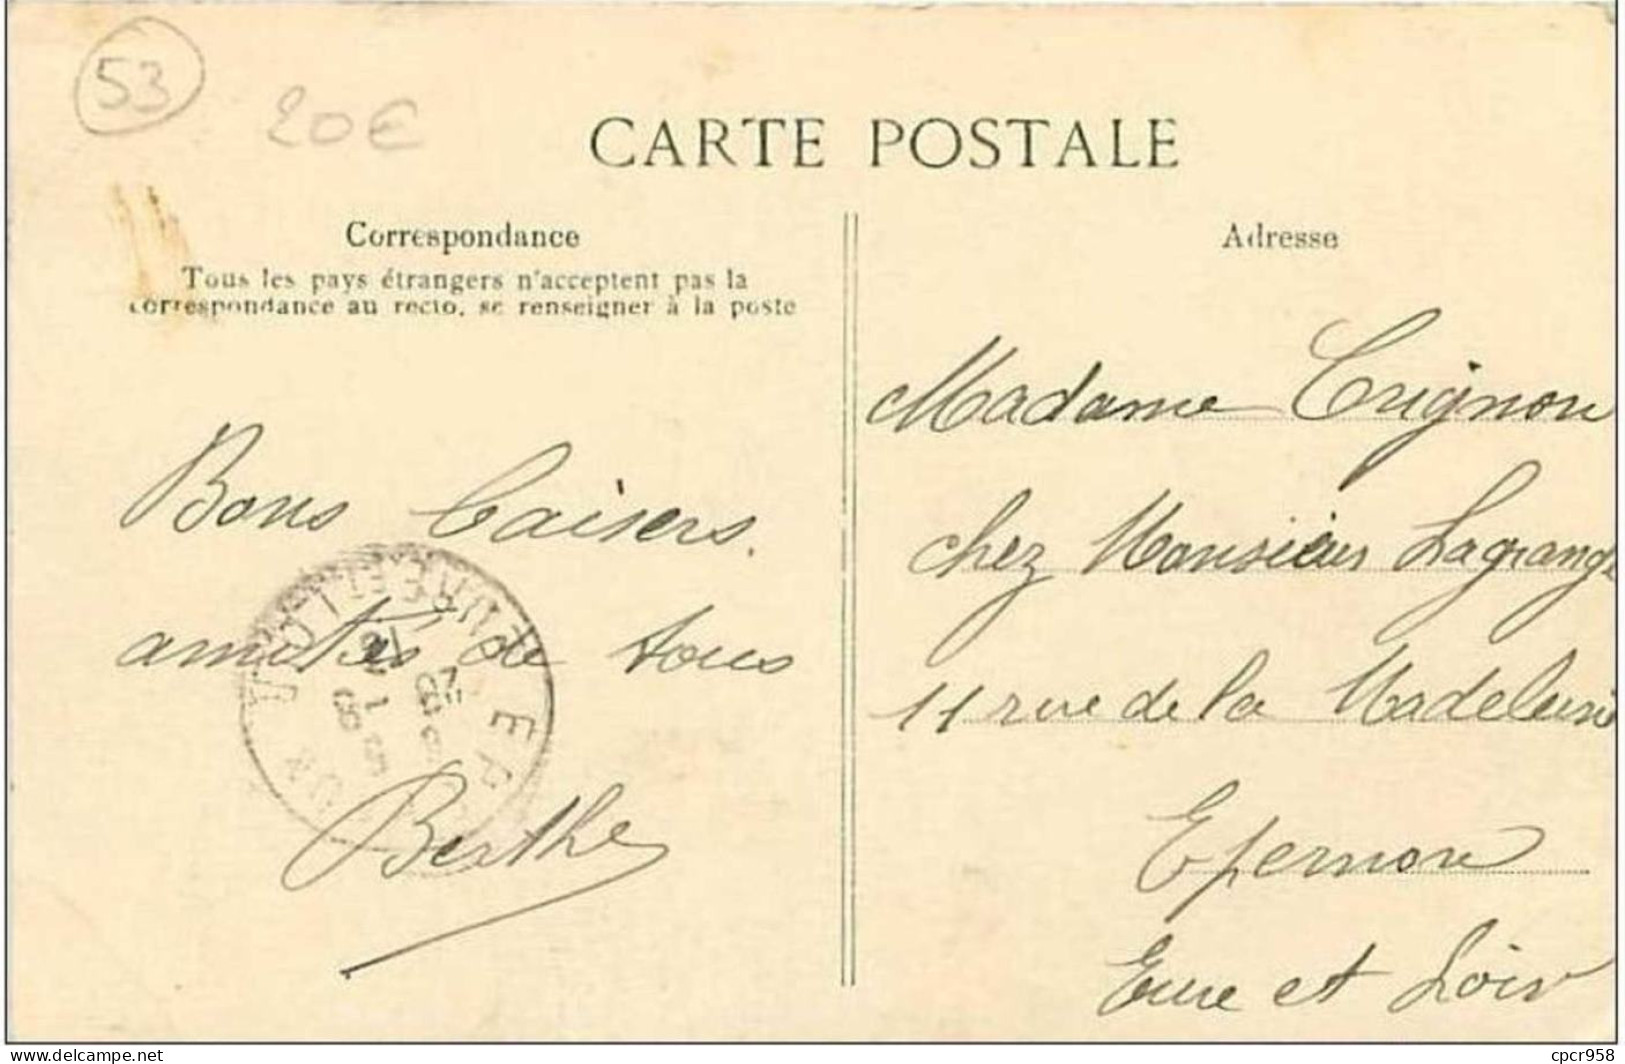 53
20€
CARTE POSTALE
Correspondance
Tous les pays étrangers n'acceptent pas la
correspondance au recto, se renseigner à la poste
Bons baisers.
amitiés de tous
Berthe
Adresse
Madame Crignon
chez Monsieur Lagrange
11 rue de la Madeleine
Epernon
Eure et Loir
delcampe.net
cpcr958